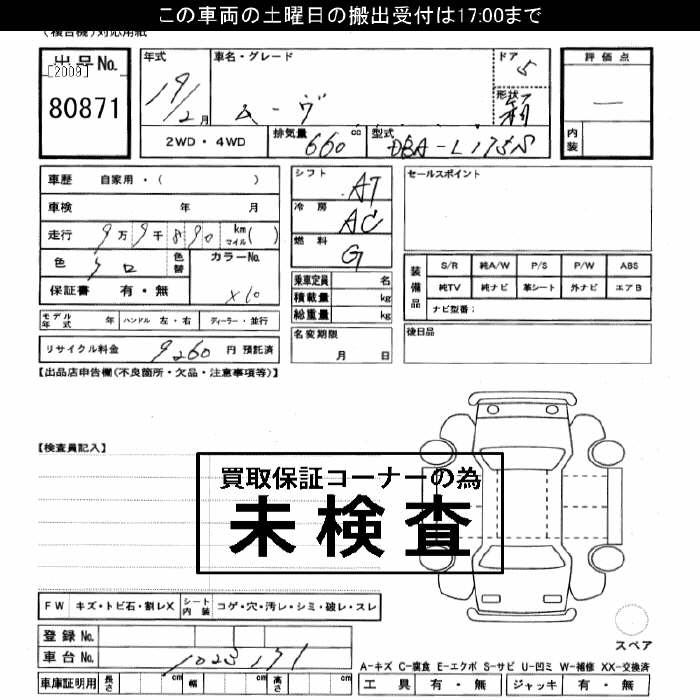 この車両の土曜日の搬出受付は17:00まで
(複合機)対応用紙
出品No.
[2009]
80871
年式 車名・グレード ドア 5
19 1/2月 ムーヴ 形状 箱
2WD・4WD 排気量 660 cc 型式 DBA-L175S
評価点
内装
車歴 自家用・( )
車検 年 月
走行 9万9千890 km マイル( )
色 シロ 色替 カラーNo.
X10
保証書 有・無
シフト AT
冷房 AC
燃料 G
乗車定員 名
積載量 kg
総重量 kg
セールスポイント
装備品 S/R 純A/W P/S P/W ABS
純TV 純ナビ 革シート 外ナビ エアB
ナビ型番:
モデル年式 年 ハンドル 左・右 ディーラー・並行
名変期限
月 日
後日品
リサイクル料金 9260 円 預託済
【出品店申告欄(不良箇所・欠品・注意事項等)】
【検査員記入】
買取保証コーナーの為
未検査
FW キズ・トビ石・割レX シート内装 コゲ・穴・汚レ・シミ・破レ・スレ
登録No.
車台No. 1023171
車庫証明用 長さ cm 幅 cm 高さ cm
スペア
A-キズ C-腐食 E-エクボ S-サビ U-凹ミ W-補修 XX-交換済
工具 有・無 ジャッキ 有・無